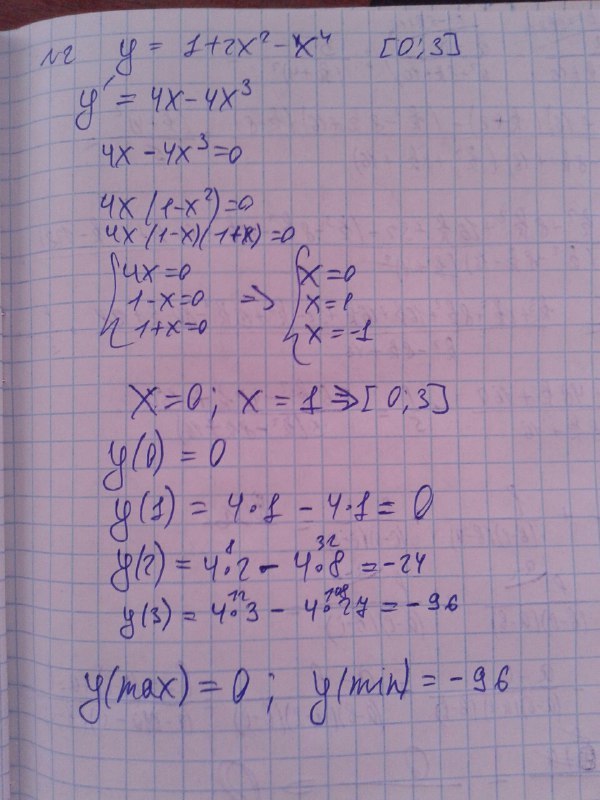 №2 y = 1+2x²-x⁴ [0;3]
y' = 4x-4x³
4x-4x³=0
4x(1-x²)=0
4x(1-x)(1+x)=0
4x=0 x=0
1-x=0 => x=1
1+x=0 x=-1
x=0; x=1 => [0;3]
y(0)=0
y(1)=4·1-4·1=0
8 32
y(2)=4·2-4·8=-24
12 108
y(3)=4·3-4·27=-96
y(max)=0; y(min)=-96